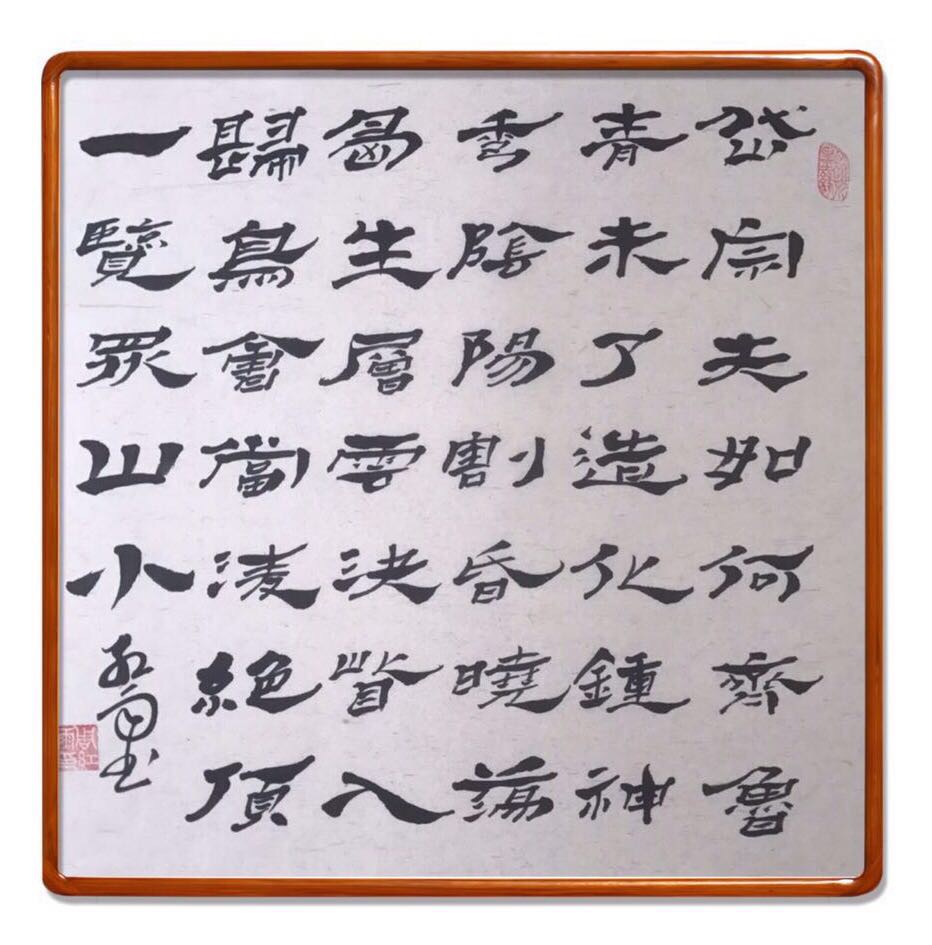 岱宗夫如何齊魯
青未了造化鍾神
秀陰陽割昏曉蕩
胷生層雲決眥入
歸鳥會當淩絕頂
一覽眾山小
红雨书
周紅雨印